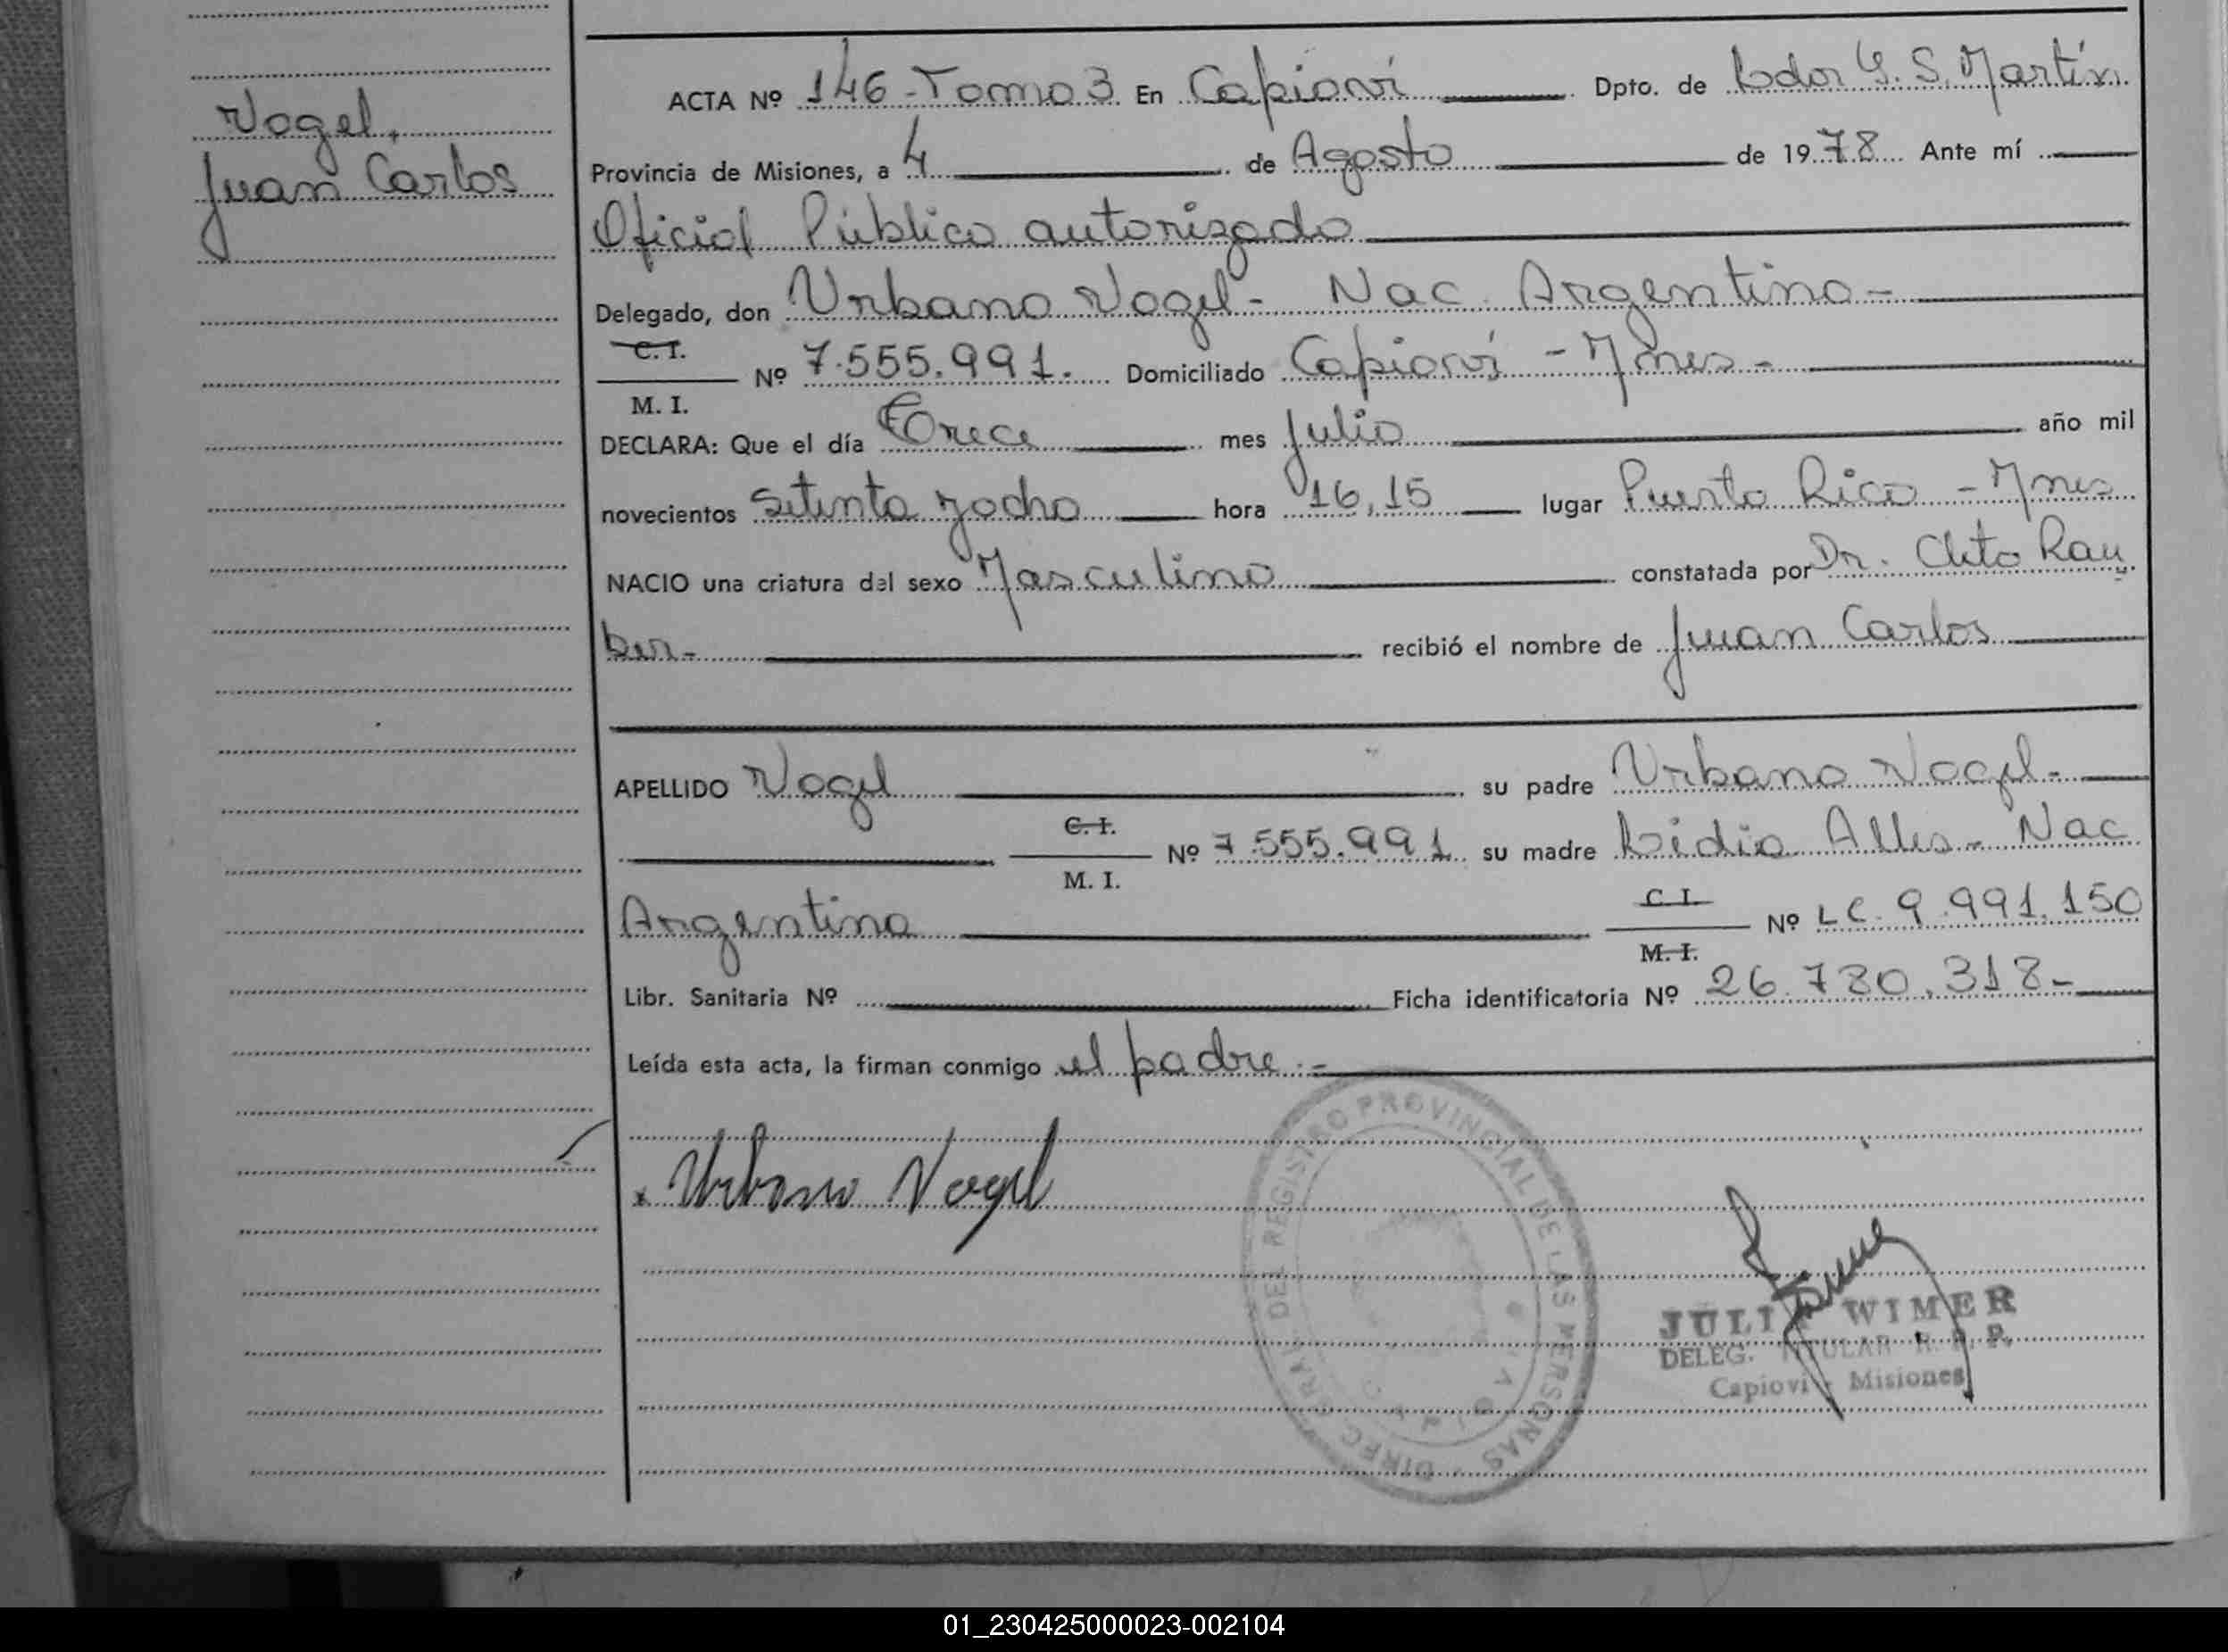 Vogel,
Juan Carlos
ACTA Nº 146-Tomo 3 En Capioví Dpto. de Ldor G. S. Martín
Provincia de Misiones, a 4 de Agosto de 1978 Ante mí
Oficial Público autorizado
Delegado, don Urbano Vogel- Nac. Argentina-
C. I.
Nº 7.555.991. Domiciliado Capioví - Mnes-
M. I.
DECLARA: Que el día Trece mes Julio año mil
novecientos Setenta yocho hora 16,15 lugar Puerto Rico - Mnes
NACIO una criatura del sexo Masculino constatada por Dr. Clito Rau
ber- recibió el nombre de Juan Carlos
APELLIDO Vogel su padre Urbano Vogel-
C. I.
Nº 7.555.991 su madre Lidia Alles- Nac
M. I.
Argentina
C. I.
Nº LC. 9.991.150
M. I.
Libr. Sanitaria Nº Ficha identificatoria Nº 26.780.318-
Leída esta acta, la firman conmigo el padre.-
x Urbano Vogel
DIREC. GRAL DEL REGISTRO PROVINCIAL DE LAS PERSONAS
CAPIOVI
WIMER
DELEG. TITULAR R. P. P.
Capiovi - Misiones
01_230425000023-002104